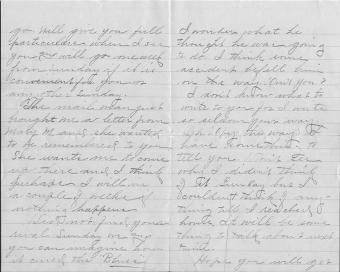 go will give you full
particulars when I see
you & I will go one week
from Sunday if it is
convenient for you or
any other Sunday.
The mail man just
brought me a letter from
Mary M and she wanted
to be remembered to you
She wants me to come
up there and I think
perhaps I will in
a couple of weeks if
nothing happens.
you
Sunday or
you can imagine how
it cured the "Blues"
I wonder what he
thought he was going
to do. I think some
accident befell him
on the way. Don't you?
I don't know what to
write to you for I write
so seldom your way
By the way I
have to
tell you
why I didn't think
of it Sunday but I
couldn't think of any-
thing till I reached
home. It will be some
thing to talk about next
time.
Hope you will get